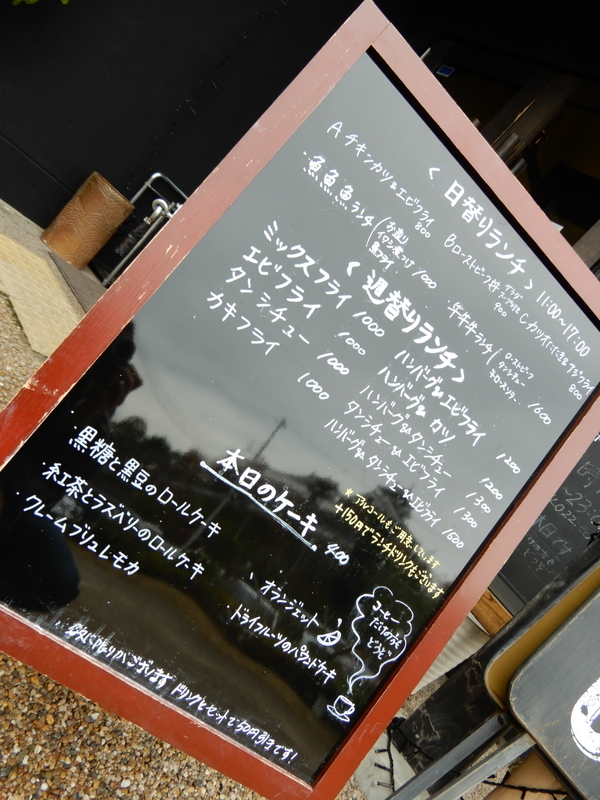 < 日替りランチ > 11:00~17:00
A チキンカツ&エビフライ 800
Bローストビーフ丼 サラダ スープ付 900
Cカツオたたき&アジフライ 800
・魚魚魚ランチ( お造り 煮つけ 魚フライ 1000
・牛牛牛ランチ( ローストビーフ タンシチュー 1600
< 週替りランチ >
ミックスフライ 1000
エビフライ 1000
タンシチュー 1000
カキフライ 1000
ハンバーグ&エビフライ 1200
ハンバーグ&カツ 1200
ハンバーグ&タンシチュー 1300
タンシチュー&エビフライ 1300
ハンバーグ&タンシチュー&エビフライ 1500
★アルコールもご用意しています
+150円でランチドリンクもございます
本日のケーキ 400
・黒糖と黒豆のロールケーキ
・紅茶とラズベリーのロールケーキ
・クレームブリュレモカ
、オランジェット
、ドライフルーツのパウンドケーキ
コーヒー
だけの方も
どうぞ
ございます ドリンクとセットで50円引きです!